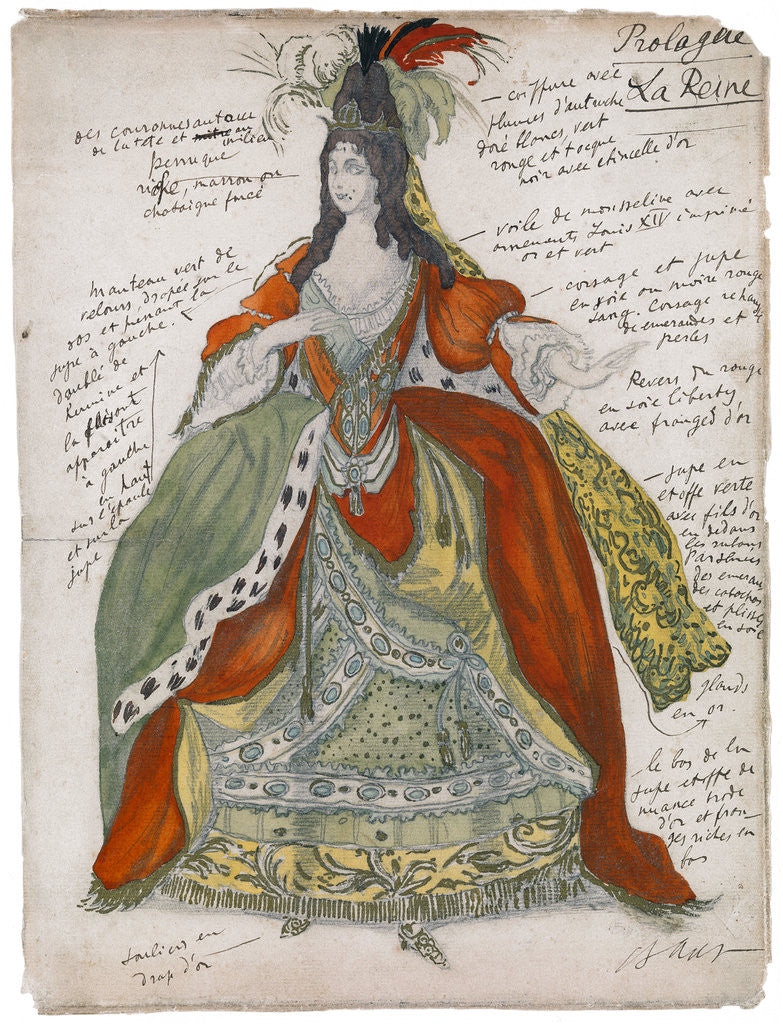 Prologue
La Reine
des couronnes autour
de la tête et mitre au milieu
perruque
riche, marron ou
chataigne foncé
— coiffure avec
plumes d'autruche
doré blancs, vert
rouge et toque
noir avec etincelle d'or
— voile de mousseline avec
ornements Louis XIV imprimé
or et vert
— corsage et jupe
en soie ou moire rouge
sang. Corsage rehaussé
de emeraudes et
perles
Manteau vert de
velours, drapée sur le
dos et prenant la
jupe à gauche.
doublé de
Hermine et
la faisant
apparaitre
à gauche
en haut
sur l'épaule
et sur la
jupe
Revers du rouge
en soie liberty
avec franges d'or
— jupe en
etoffe verte
avec fils d'or
en dedans
les rubans
parsemés
des emeraudes
des cabochons
et plissés
en soie
glands
en or.
— le bas de la
jupe etoffe de
nuance
d'or et fran-
ges riches en
bas
Souliers en
drap d'or
Bakst